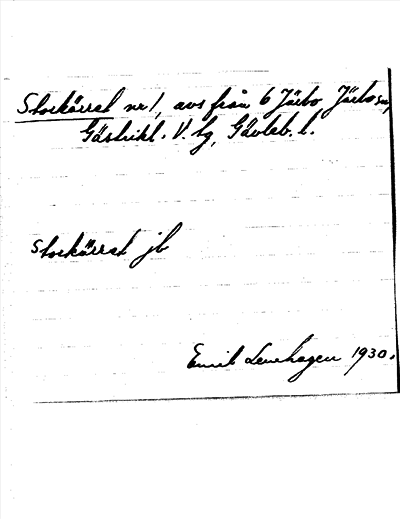 Storkärret nr 1, avs från 6 Järbo Järbo sn,
Gästrikl. V. tg, Gävleb. l.
Storkärret jb
Emil Lenehagen 1930.